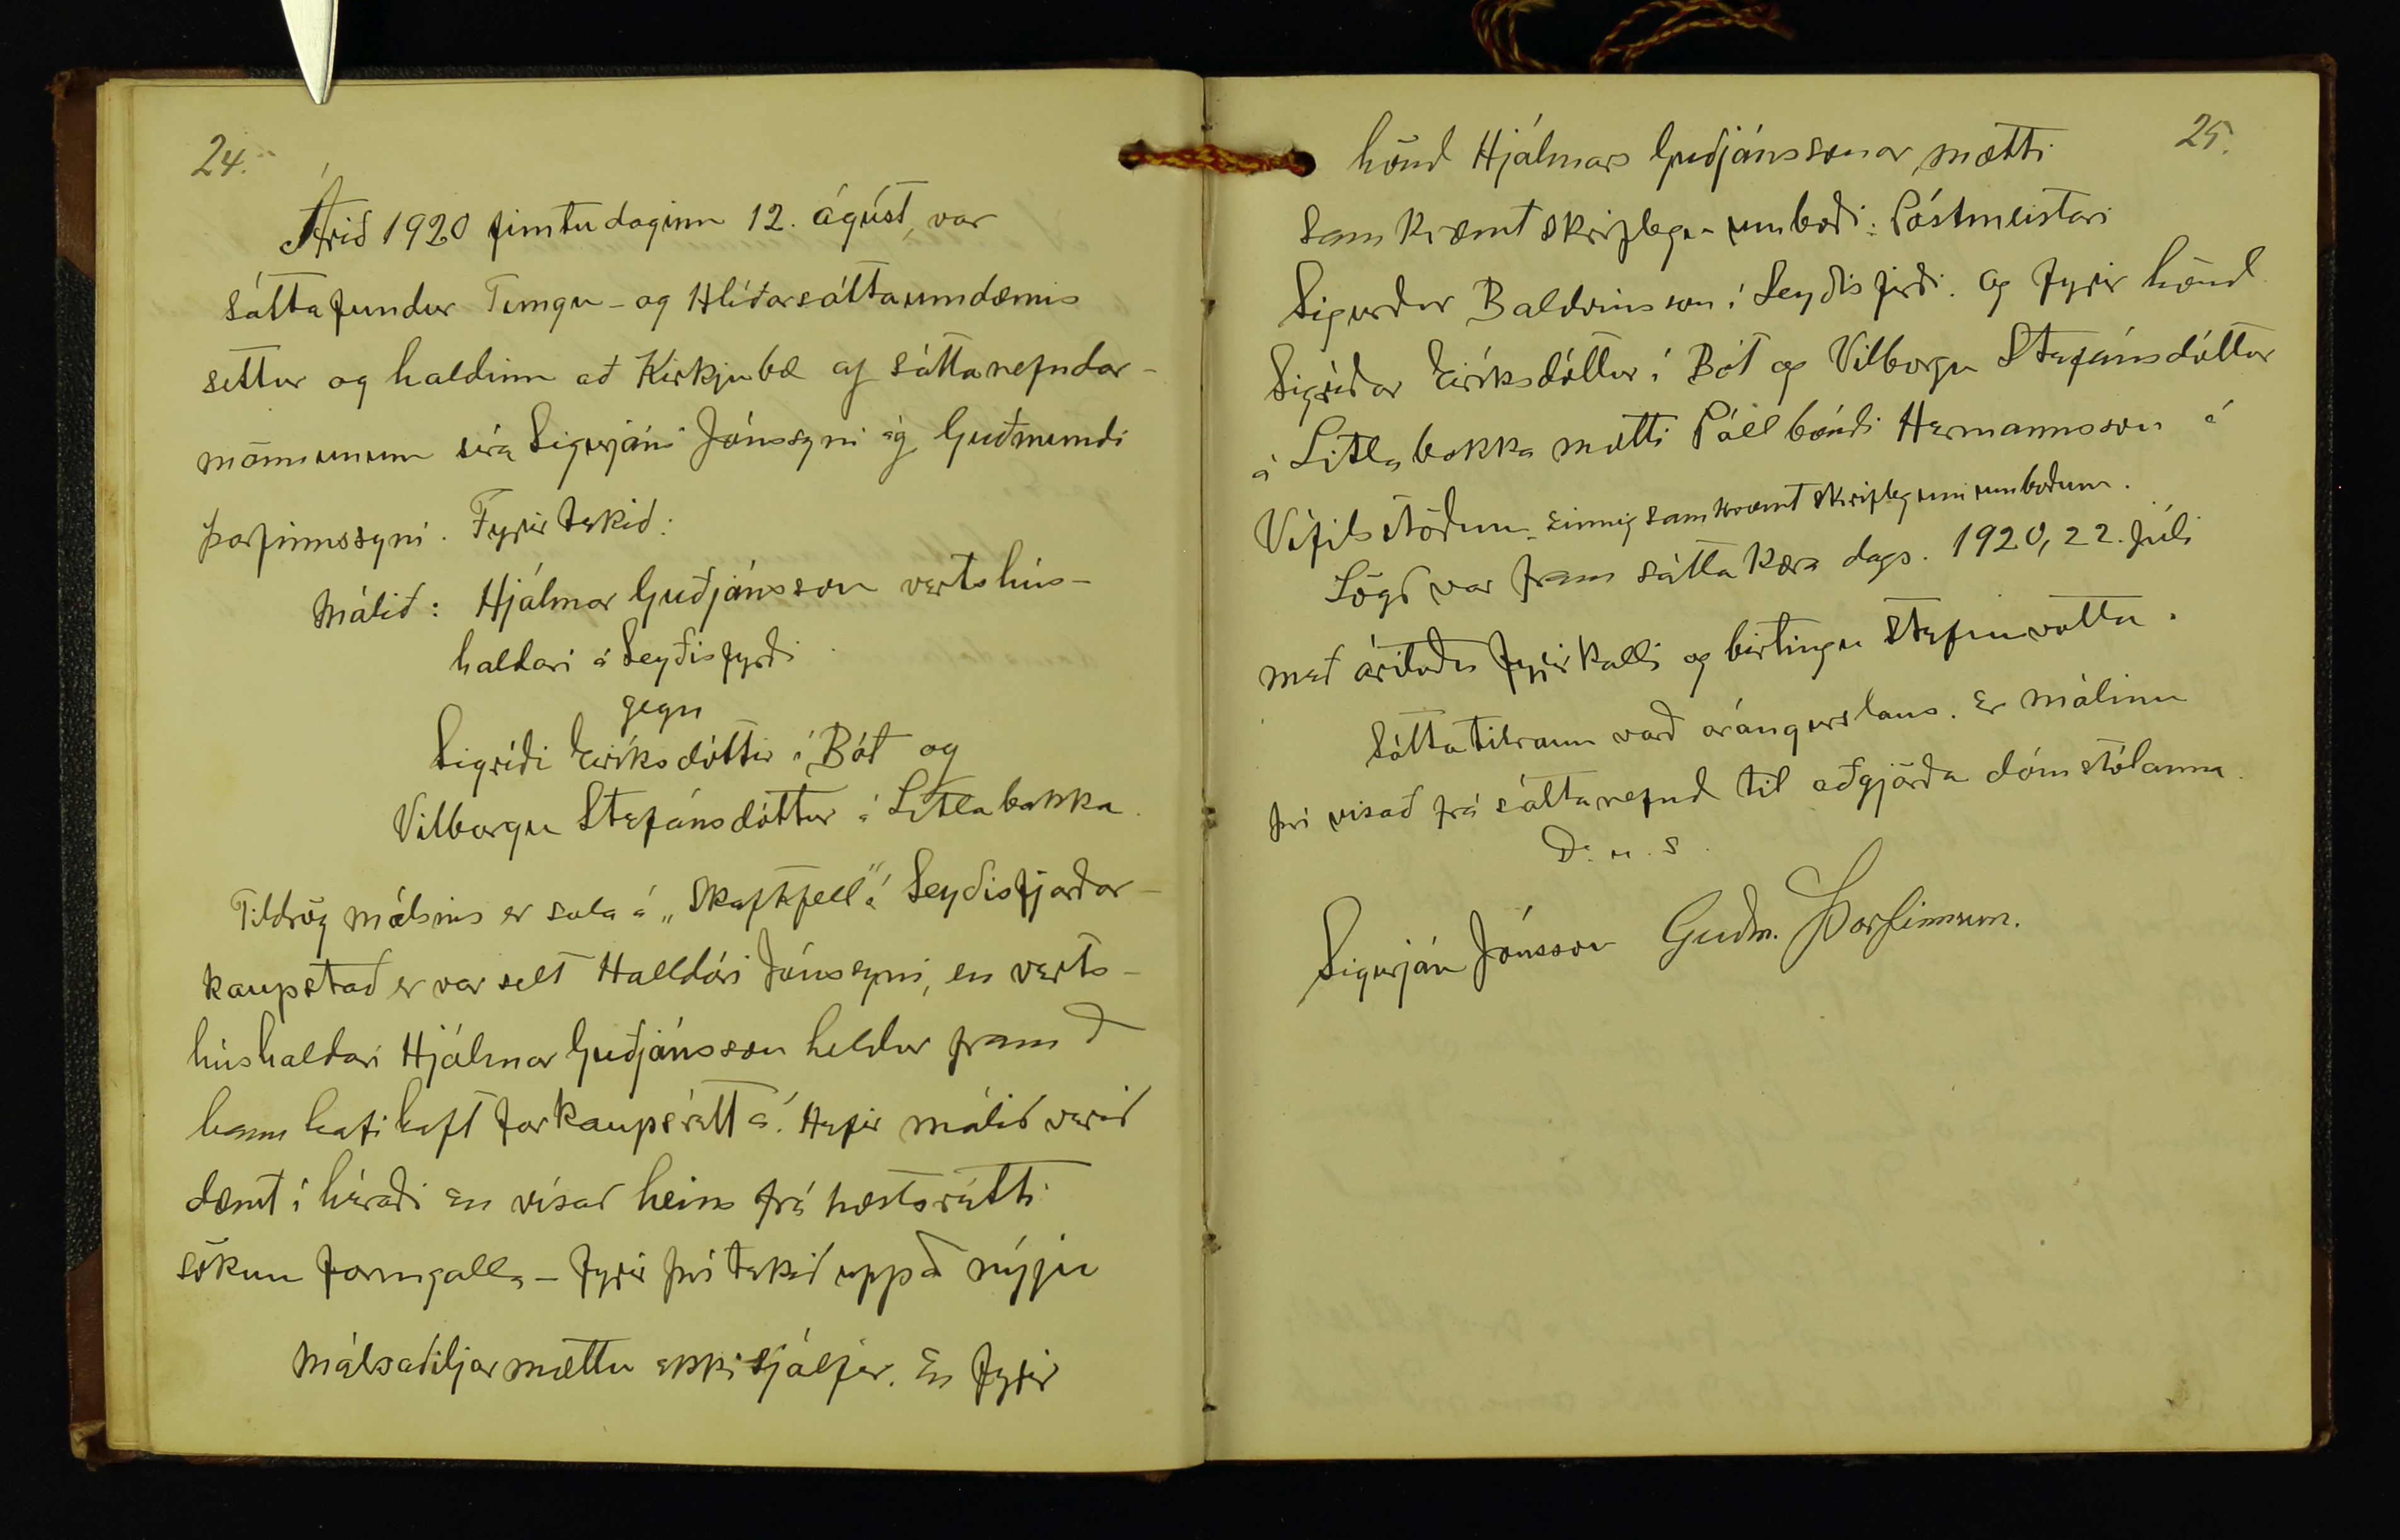 24.
Árið 1920 fimtudaginn 12. ágúst, var
sáttafundur Tungu- og Hlíðarsáttaumdæmis
settur og haldinn að Kirkjubæ af sáttanefndar-
mönnunum séra Sigurjóni Jónssyni og Guðmundi
Þorfinnssyni. Fyrirtekið:
Málið: Hjálmar Guðjónsson vertshús-
haldari á Seyðisfyrði
gegn
Sigríði Eiríksdóttir í Bót og
Vilborgu Stefánsdóttur á Litlabakka.
Tildrög málsins er sala á „Skaftfell" á Seyðisfjarðar-
kaupstað er var selt Halldóri Jónssyni, en verts-
húshaldari Hjálmar Guðjónsson heldur fram að
hann hafi haft forkaupsrétt á. Hefir málið verið
dæmt í héraði en vísað heim frá hæstarétti
sökum formgalla - fyrir því tekið upp á nýju
Málsaðiljar mættu ekki sjálfir. En fyrir
25.
hönd Hjálmars Guðjónssonar mætti
samkvæmt skriflegu umboði: Póstmeistari
Sigurður Baldvinsson í Seyðisfirði. Og fyrir hönd
Sigríðar Eiríksdóttur í Bót og Vilborgu Stefánsdóttur
á Litlabakka mætti Páll bóndi Hermannsson á
Vífilsstöðum, einnig samkvæmt skriflegum umboðum.
Lögð var fram sáttakæra dags. 1920, 22. júlí
með árituðu fyrirkalli og birtingu stefnuvotta.
Sáttatilraun varð árangurslaus. Er málinu
því vísað frá sáttanefnd til aðgjörða dómstólanna.
D. u. s.
Sigurjón Jónsson Guðm. Þorfinnsson.